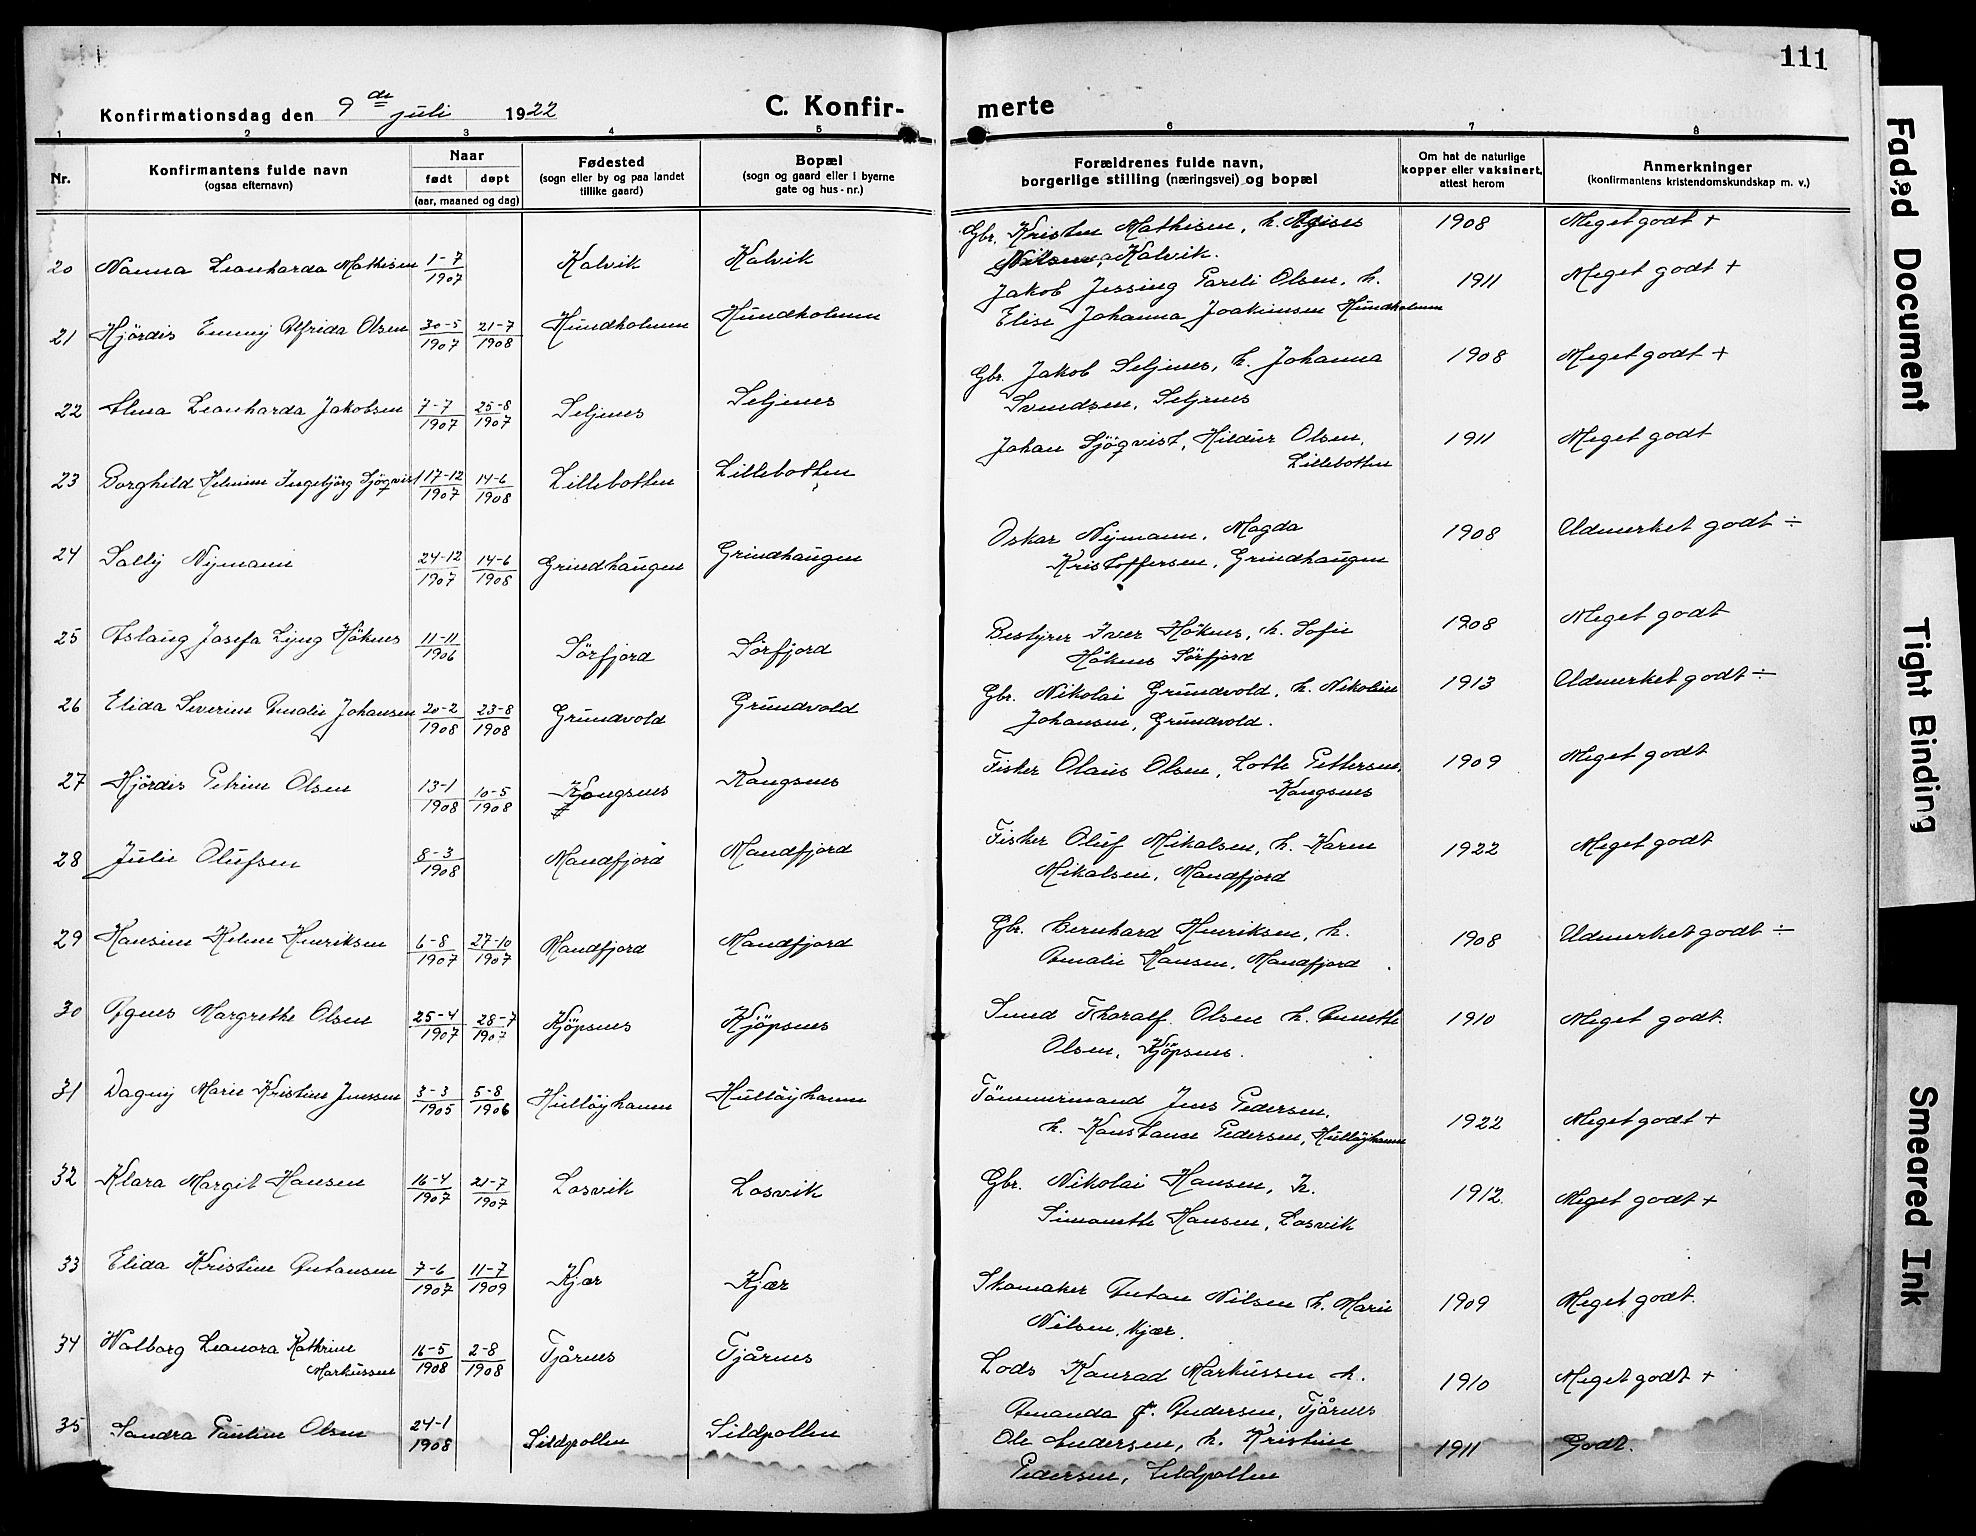 111
Konfirmationsdag den 9de juli 1922 C. Konfir-merte
1 2 3 4 5 6 7 8
Nr.
Konfirmantens fulde navn
(ogsaa efternavn)
Naar
født døpt
(aar, maaned og dag)
Fødested
(sogn eller by og paa landet
tillike gaard)
Bopæl
(sogn og gaard eller i byerne
gate og hus-nr.)
Forældrenes fulde navn,
borgerlige stilling (næringsvei) og bopæl
Om hat de naturlige
kopper eller vaksinert,
attest herom
Anmerkninger
(konfirmantens kristendomskundskap m. v.)
20 Nanna Leonharda Mathisen 1-7 1907 Kalvik Kalvik Gbr. Kristen Mathisen, h. Agnes 1908 Meget godt +
Nilsen, Kalvik.
21 Hjördis Emmy Alfrida Olsen 30-5 1907 21-7 1908 Hundholmen Hundholmen Jakob Jessing Pareli Olsen, h. 1911 Meget godt +
Elise Johanna Joakimsen Hundholmen
22 Alma Leonharda Jakobsen 7-7 1907 25-8 1907 Seljenes Seljenes Gbr. Jakob Seljenes, h. Johanna 1908 Meget godt +
Svendsen, Seljenes
23 Borghild Helmine Ingebjörg Sjöqvist 17-12 1907 14-6 1908 Lillebotten Lillebotten Johan Sjöqvist, Hildur Olsen, 1911 Meget godt
Lillebotten
24 Sally Nymann 24-12 1907 14-6 1908 Grindhaugen Grindhaugen Oskar Nymann, Magda 1908 Udmerket godt ÷
Kristoffersen, Grindhaugen
25 Aslaug Josefa Lyng Höknes 11-11 1906 Sörfjord Sörfjord Bestyrer Iver Höknes, h. Sofie 1908 Meget godt
Höknes Sörfjord
26 Elida Severine Amalie Johansen 20-2 1908 23-8 1908 Grundvold Grundvold Gbr. Nikolai Grundvold, h. Nikoline 1913 Udmerket godt ÷
Johansen, Grundvold.
27 Hjördis Petrine Olsen 13-1 1908 10-5 1908 Kongsnes Kongsnes Fisker Olaus Olsen, Lotte Pettersen, 1909 Meget godt
Kongsnes
28 Julie Olufsen 8-3 1908 Mandfjord Mandfjord Fisker Oluf Mikalsen, h. Karen 1922 Meget godt
Mikalsen, Mandfjord
29 Hansine Helene Henriksen 6-8 1907 27-10 1907 Mandfjord Mandfjord Gbr. Bernhard Henriksen, h. 1908 Udmerket godt ÷
Amalie Hansen, Mandfjord
30 Agnes Margrethe Olsen 25-4 1907 28-7 1907 Kjöpsnes Kjöpsnes Smed Thoralf Olsen h. Anette 1910 Meget godt.
Olsen, Kjöpsnes.
31 Dagny Marie Kristine Jenssen 3-3 1905 5-8 1906 Hullöyhamn Hullöyhamn Tömmermand Jens Pedersen, 1922 Meget godt +
h. Konstanse Pedersen, Hullöyhamn
32 Klara Margit Hansen 16-4 1907 21-7 1907 Losvik Losvik Gbr. Nikolai Hansen, h. 1912. Meget godt +
Simonette Hansen, Losvik
33 Elida Kristine Antonsen 7-6 1907 11-7 1909 Kjær Kjær Skomaker Anton Nilsen h. Marie 1909 Meget godt.
Nilsen, Kjær.
34 Walborg Leonora Kathrine 16-5 1908 2-8 1908 Tjårnes Tjårnes Lods Konrad Markussen h. 1910 Meget godt +
Markussen Amanda J. Andersen, Tjårnes
35 Sandra Pauline Olsen 24-1 1908 Sildpollen Sildpollen Ole Andersen, h. Kristine 1911 Godt.
Pedersen, Sildpollen
Faded Document
Tight Binding
Smeared Ink